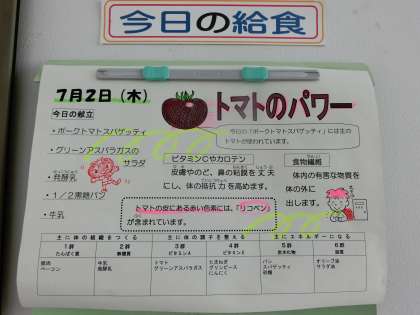 今日の給食
7月2日（木）
トマトのパワー
今日の献立
・ポークトマトスパゲッティ
・グリーンアスパラガスの
サラダ
・発酵乳
・1／2黒糖パン
・牛乳
今日の「ポークトマトスパゲッティ」には生の
トマトが使われています。
ビタミンCやカロテン
皮膚やのど、鼻の粘膜を丈夫
にし、体の抵抗力を高めます。
食物繊維
体内の有害な物質を
体の外に
出します。
トマトの皮にある赤い色素には、「リコペン」
が含まれています。
主に体の組織をつくる
主に体の調子を整える
主にエネルギーになる
1群 2群 3群 4群 5群 6群
たんぱく質 無機質 ビタミンA ビタミンC 炭水化物 脂質
豚肉 牛乳 トマト たまねぎ パン オリーブ油
ベーコン 発酵乳 グリーンアスパラガス グリンピース スパゲティ サラダ油
にんにく 砂糖